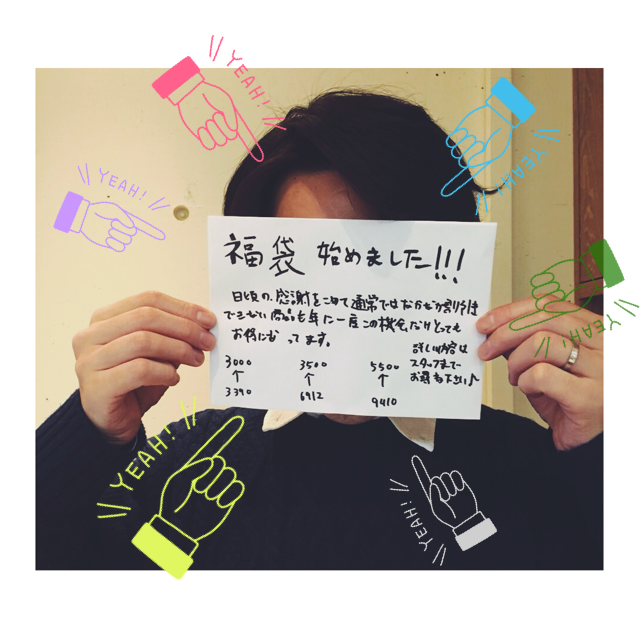 YEAH!
YEAH!
YEAH!
福袋 始めました!!!
日頃の、感謝をこめて通常ではなかなか割引け
できない商品も年に一度この機会だけとても
お得になってます。
詳しい内容は
スタッフまで
お尋ね下さい♪
3000 3500 5500
↑ ↑ ↑
3390 6912 9410
YEAH!
YEAH!
YEAH!